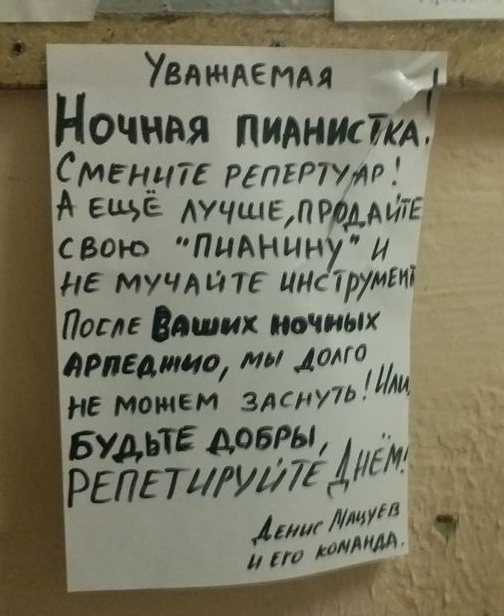 Уважаемая
Ночная пианистка!
Смените репертуар!
А ещё лучше, продайте
свою "пианину" и
не мучайте инструмент
После Ваших ночных
арпеджио, мы долго
не можем заснуть! Или,
будьте добры,
репетируйте днём!
Денис Мацуев
и его команда.